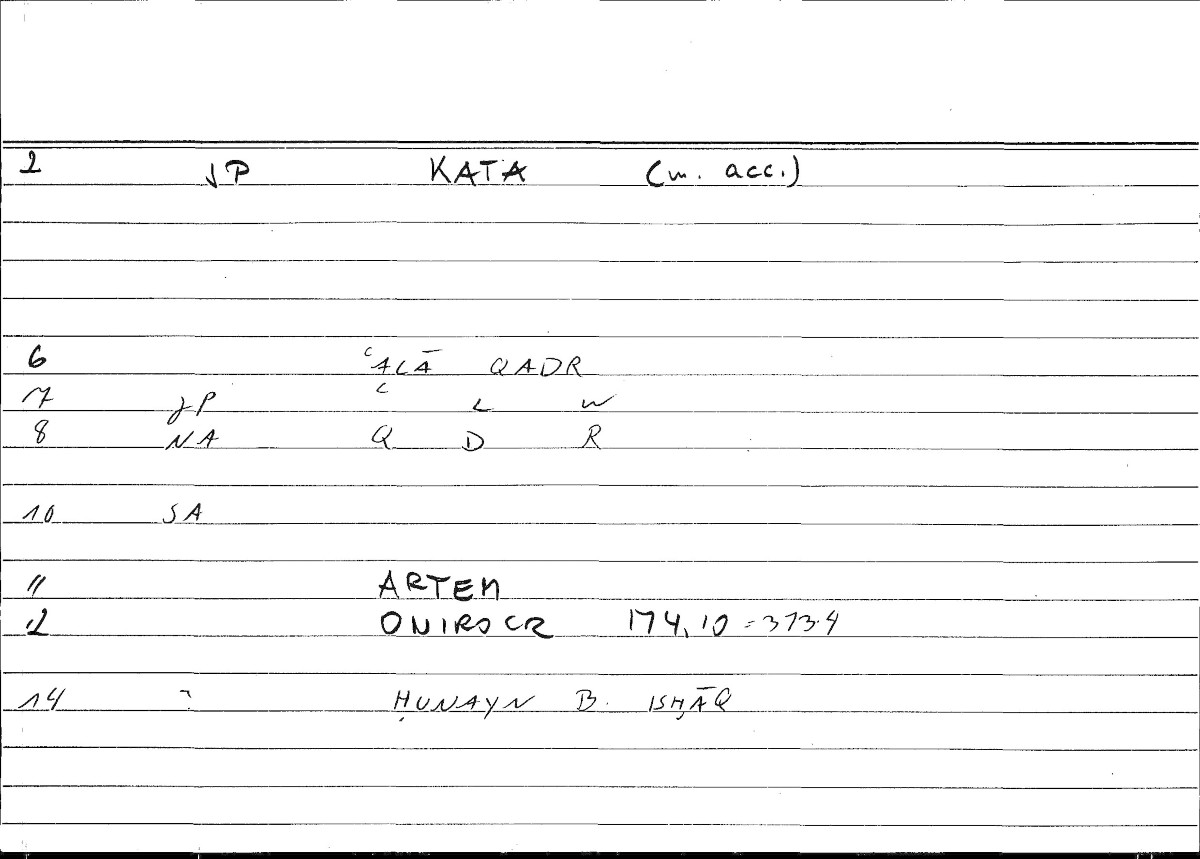 2 JP KATA (m. acc.)
6 ʿALĀ QADR
7 JP ʿ L W
8 NA Q D R
10 SA
11 ARTEM
12 ONIROCR 174,10 = 373.4
14 ? ḤUNAYN B. ISḤĀQ